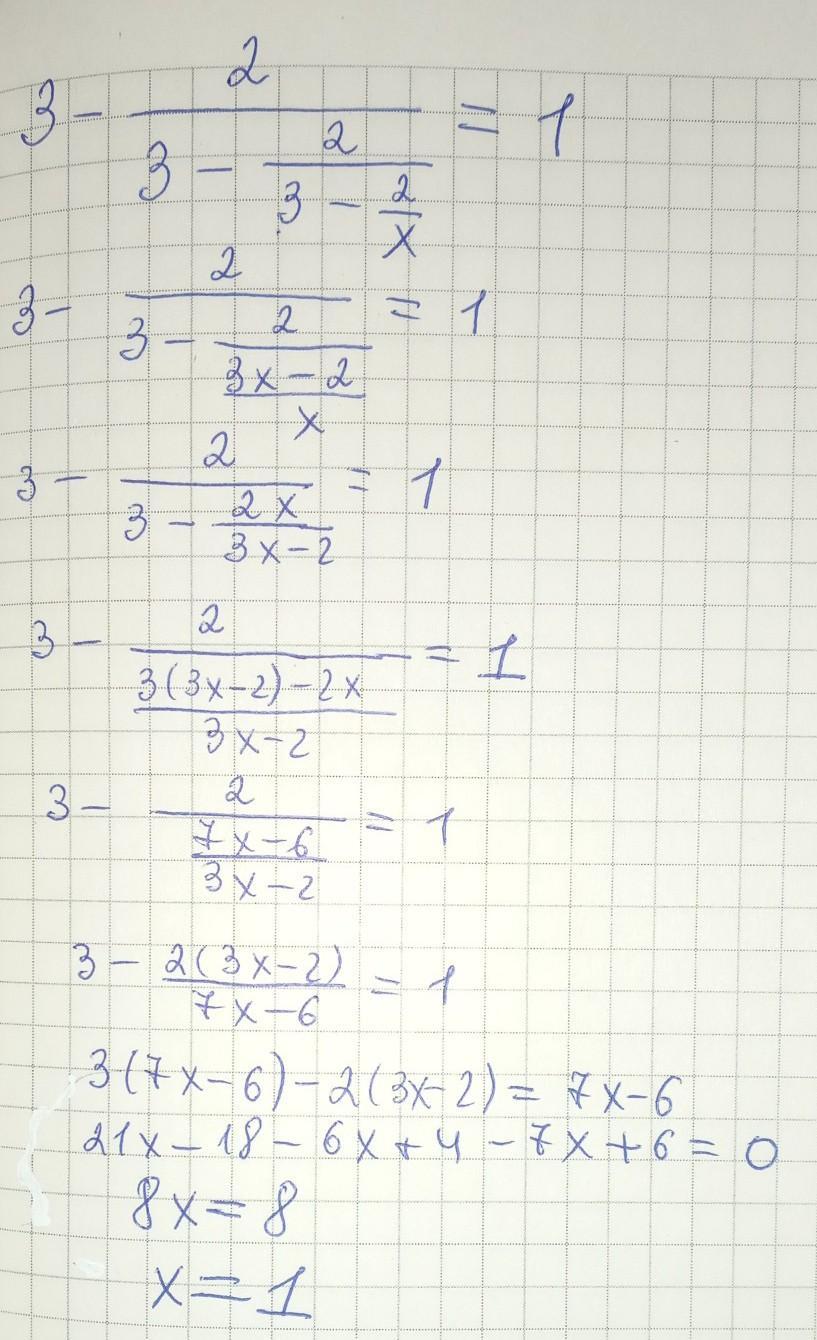 3 - 2/(3 - 2/(3 - 2/x)) = 1
3 - 2/(3 - 2/((3x - 2)/x)) = 1
3 - 2/(3 - 2x/(3x-2)) = 1
3 - 2/((3(3x-2)-2x)/(3x-2)) = 1
3 - 2/((7x-6)/(3x-2)) = 1
3 - 2(3x-2)/(7x-6) = 1
3(7x-6)-2(3x-2)= 7x-6
21x-18-6x+4-7x+6=0
8x=8
x=1